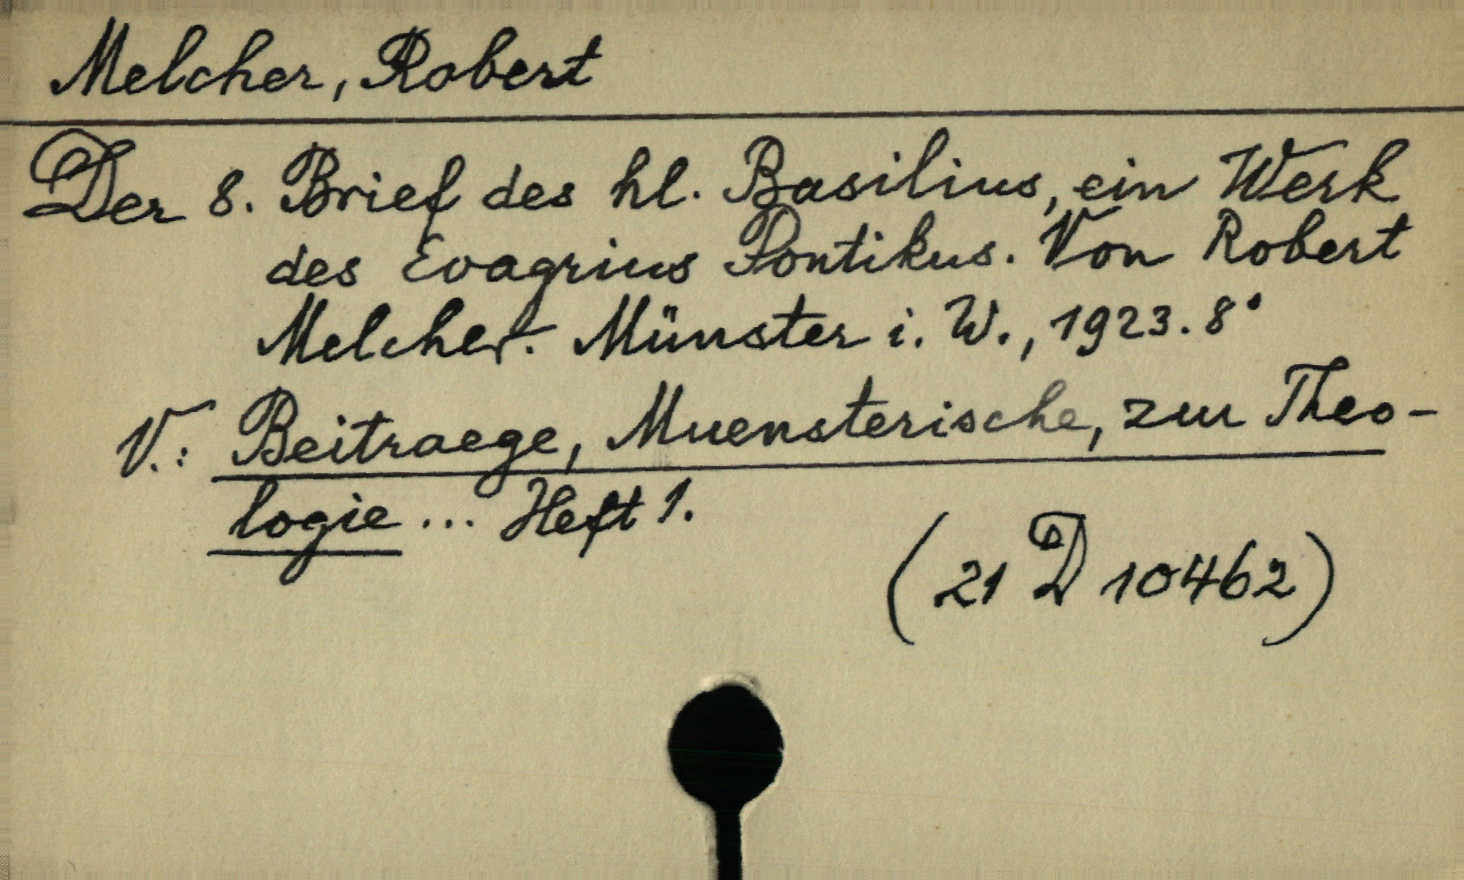 Melcher, Robert
Der 8. Brief des hl. Basilius, ein Werk
des Evagrius Pontikus. Von Robert
Melcher. Münster i. W., 1923. 8°
V.: Beitraege, Muensterische, zur Theo-
logie ... Heft 1.
(21 D 10462)